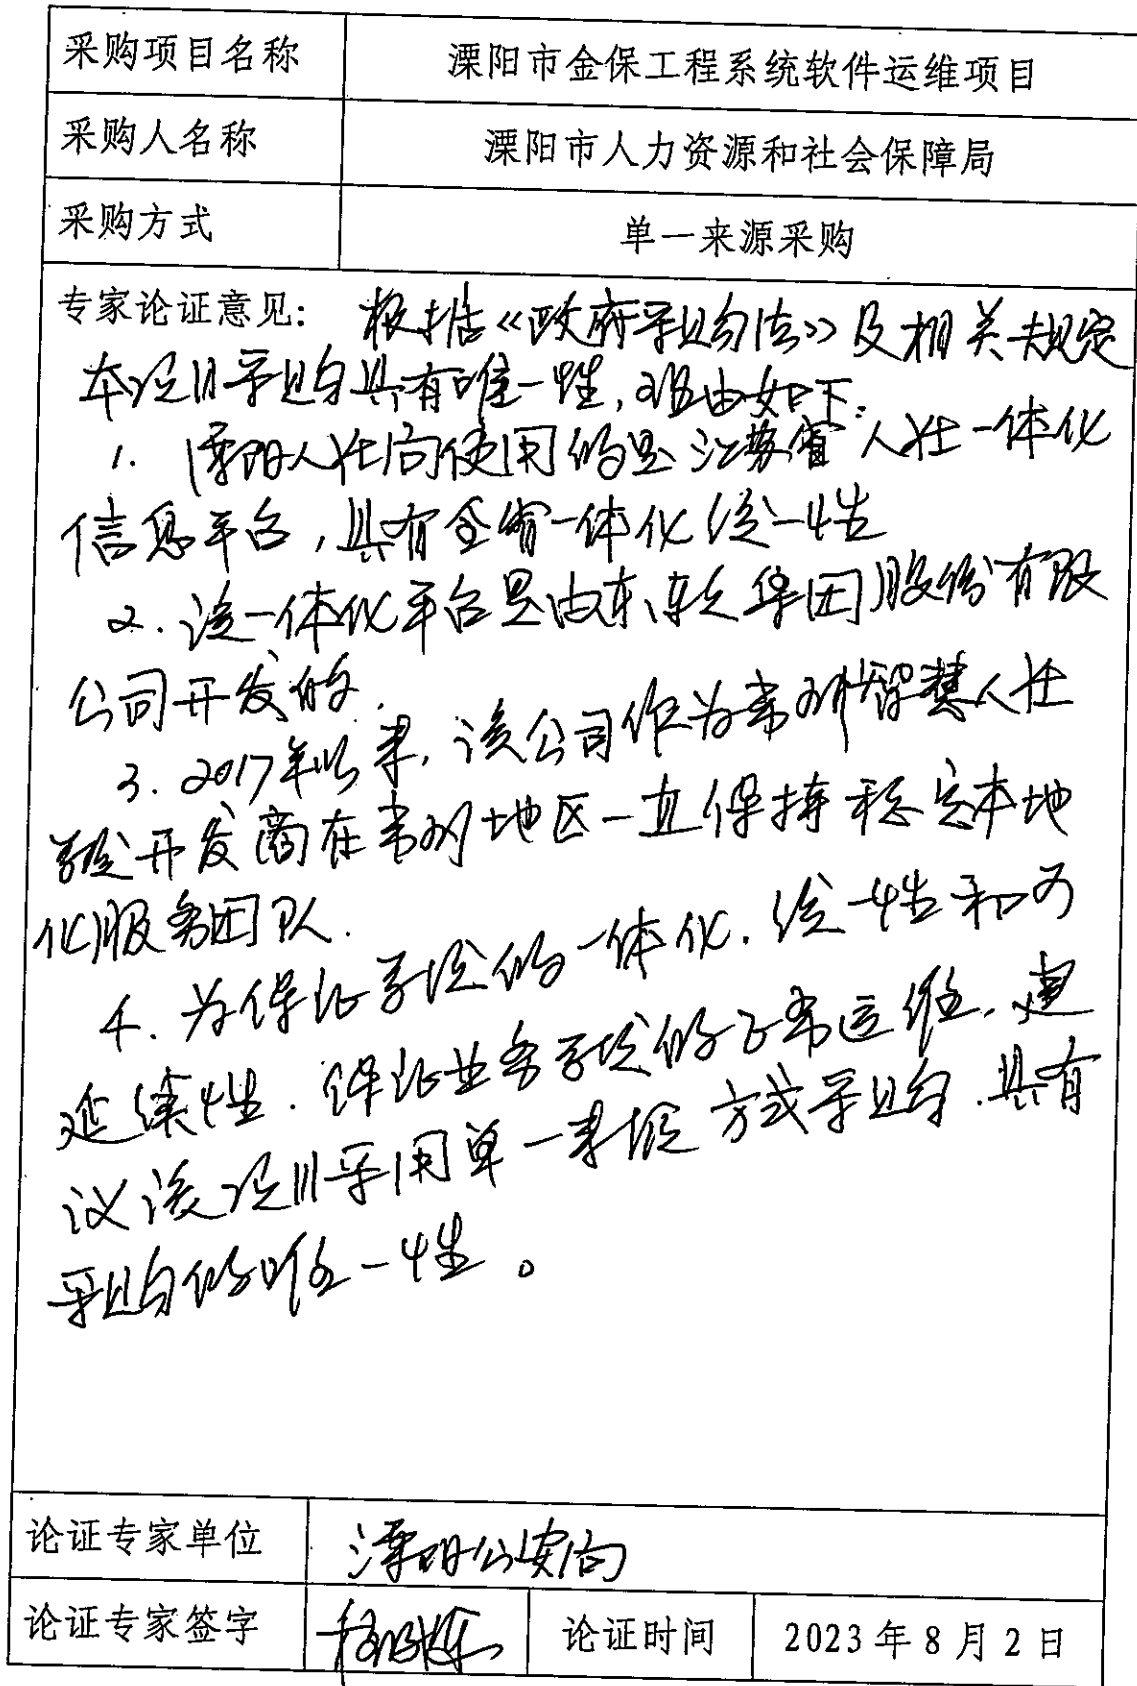 采购项目名称 溧阳市金保工程系统软件运维项目
采购人名称 溧阳市人力资源和社会保障局
采购方式 单一来源采购
专家论证意见: 根据《政府采购法》及相关规定
本项目采购具有唯一性,理由如下:
1. 溧阳人社局使用的是江苏省人社一体化
信息平台,具有全省一体化统一性
2. 该一体化平台是由东软集团股份有限
公司开发的.
3. 2017年以来,该公司作为常州智慧人社
系统开发商在常州地区一直保持稳定本地
化服务团队.
4. 为保证系统的一体化.统一性和可
延续性.保证业务系统的正常运维.建
议该项目采用单一来源方式采购.具有
采购的唯一性。
论证专家单位 溧阳公安局
论证专家签字 论证时间 2023年8月2日